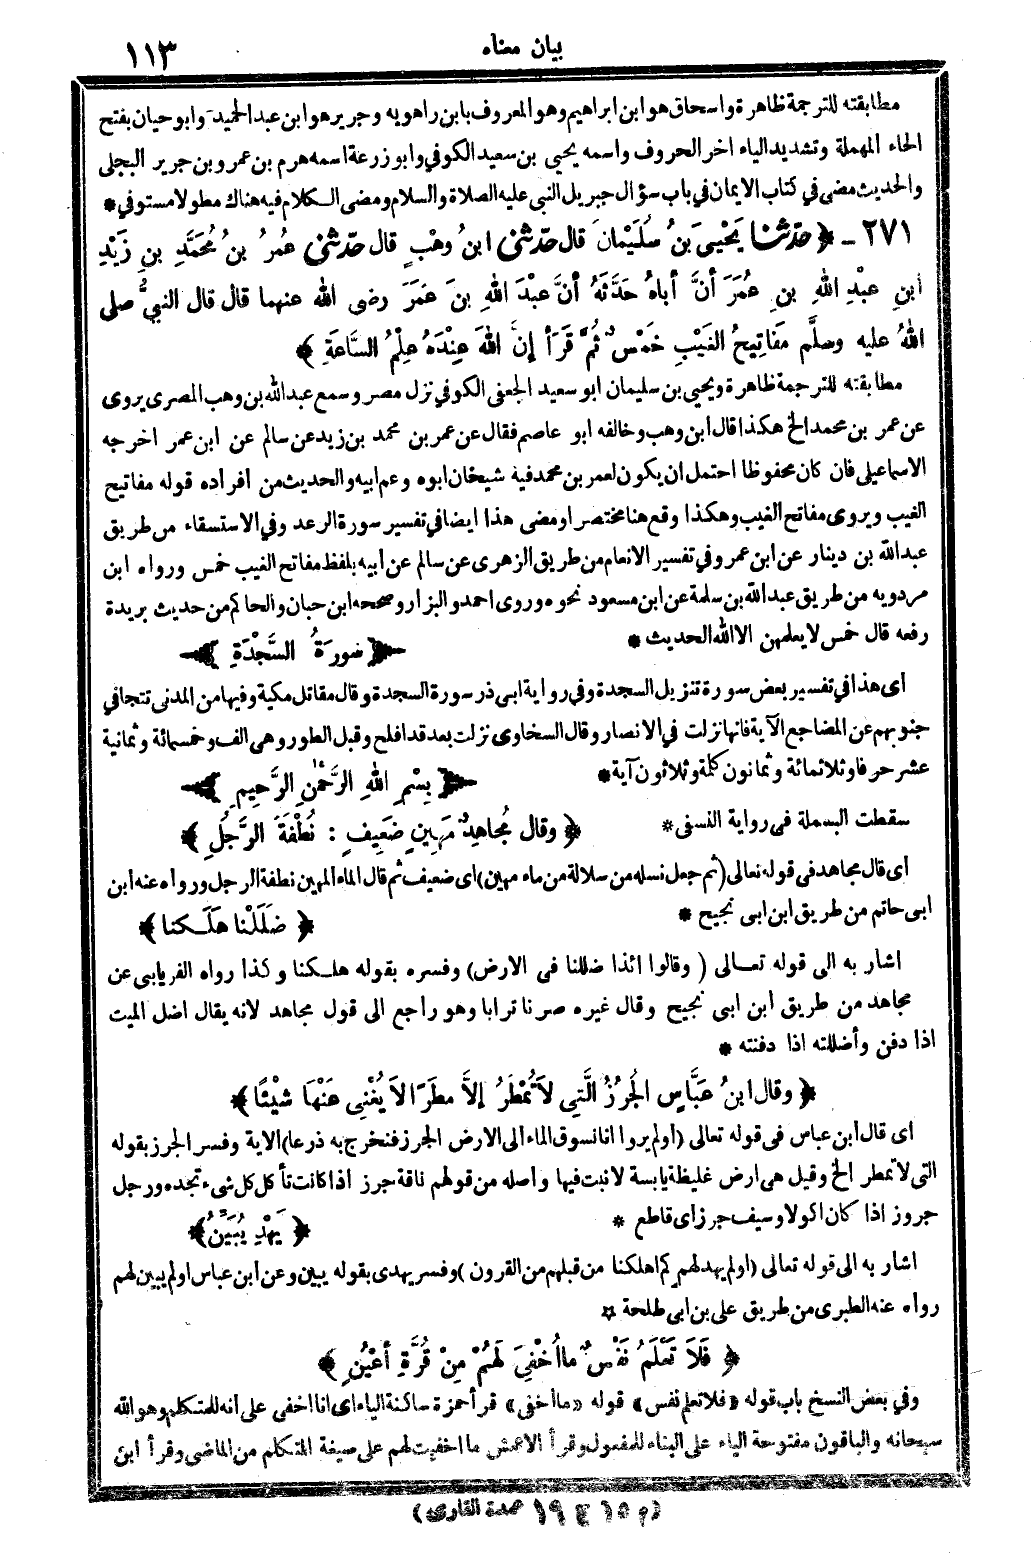 بيان معناه ١١٣
مطابقته للترجمة ظاهرة واسحاق هو ابن ابراهيم وهو المعروف بابن راهويه وجرير هو ابن عبد الحميد وابو حيان بفتح
الحاء المهملة وتشديد الياء اخر الحروف واسمه يحيى بن سعيد الكوفي وابو زرعة اسمه هرم بن عمرو بن جرير البجلى
والحديث مضى في كتاب الايمان في باب سؤال جبريل النبي عليه الصلاة والسلام ومضى الكلام فيه هناك مطولا مستوفي *
٢٧١ ـ ﴿ حدّثنا يَحْيىَ بَنُ سُلَيْمانَ قال حدّثنى ابنُ وهْبٍ قال حدّثنى عُمرُ بنُ مُحَمَّدِ بنِ زَيْدِ
ابنِ عبْدِ اللهِ بنِ عُمَرَ أنَّ أباهُ حَدَّثَهُ أنَّ عبْدَ اللهِ بنَ عمَرَ رضى اللهُ عنهما قال قال النبيُّ صلى
اللهُ عليه وسلَّم مَفاتِيحُ الغَيْبِ خَمْسٌ ثُمَّ قَرَأ إنَّ اللهَ عِنْدَهُ عِلْمُ السَّاعَةِ ﴾
مطابقته للترجمة ظاهرة ويحيى بن سليمان ابو سعيد الجعفى الكوفي نزل مصر وسمع عبد الله بن وهب المصرى يروى
عن عمر بن محمد الخ هكذا قال ابن وهب وخالفه ابو عاصم فقال عن عمر بن محمد بن زيد عن سالم عن ابن عمر اخرجه
الاسماعيلى فان كان محفوظا احتمل ان يكون لعمر بن محمد فيه شيخان ابوه وعم ابيه والحديث من افراده قوله مفاتيح
الغيب ويروى مفاتح الغيب وهكذا وقع هنا مختصرا ومضى هذا ايضا في تفسير سورة الرعد وفي الاستسقاء من طريق
عبد الله بن دينار عن ابن عمر وفي تفسير الانعام من طريق الزهرى عن سالم عن أبيه بلفظ مفاتح الغيب خمس ورواه ابن
مردويه من طريق عبد الله بن سلمة عن ابن مسعود نحوه وروى احمد والبزار وصححه ابن حبان والحاكم من حديث بريدة
رفعه قال خمس لا يعلمهن الا الله الحديث * ﴿ سُورَةُ السَّجْدَةِ ﴾
اى هذا في تفسير بعض سورة تنزيل السجدة وفي رواية ابى ذر سورة السجدة وقال مقاتل مكية وفيها من المدنى تتجافي
جنوبهم عن المضاجع الآية فانها نزلت في الانصار وقال السخاوى نزلت بعد قد افلح وقبل الطور وهى الف وخمسمائة وثمانية
عشر حرفا وثلاثمائة وثمانون كلمة وثلاثون آية * ﴿ بِسْمِ اللهِ الرَّحْمٰنِ الرَّحِيمِ ﴾
سقطت البسملة فى رواية النسفى * ﴿ وقال مُجاهِدٌ مَهِينٍ ضَعِيفٍ : نُطْفَةَ الرَّجُلِ ﴾
اى قال مجاهد فى قوله تعالى (ثم جعل نسله من سلالة من ماء مهين) اى ضعيف ثم قال الماء المهين نطفة الرجل ورواه عنه ابن
ابى حاتم من طريق ابن ابى نجيح * ﴿ ضَلَلْنا هَلَكنا ﴾
اشار به الى قوله تعالى ( وقالوا ائذا ضللنا فى الارض) وفسره بقوله هلكنا وكذا رواه الفريابى عن
مجاهد من طريق ابن ابى نجيح وقال غيره صرنا ترابا وهو راجع الى قول مجاهد لانه يقال اضل الميت
اذا دفن وأضللته اذا دفنته *
﴿ وقال ابنُ عَبَّاسٍ الجُرُزُ الَّتِي لاَ تُمْطَرُ إلاَّ مطَرًا لاَ يُغْنِى عَنْهَا شيْئًا ﴾
اى قال ابن عباس فى قوله تعالى (أولم يروا انا نسوق الماء الى الارض الجرز فنخرج به ذرعا) الاية وفسر الجرز بقوله
التى لا تمطر الخ وقيل هى ارض غليظة يابسة لا نبت فيها واصله من قولهم ناقة جرز اذا كانت تأكل كل شىء تجده ورجل
جروز اذا كان اكولا وسيف جرز اى قاطع * ﴿ يَهْدِ يُبَيِّنُ ﴾
اشار به الى قوله تعالى (اولم يهد لهم كم اهلكنا من قبلهم من القرون) وفسر يهدى بقوله يبين وعن ابن عباس اولم يبين لهم
رواه عنه الطبرى من طريق على بن ابى طلحة *
﴿ فَلاَ تَعْلَمُ نَفْسٌ ما اُخْفِيَ لَهُمْ مِنْ قُرَّةِ أعْيُنٍ ﴾
وفي بعض النسخ باب قوله «فلا تعلم نفس» قوله «ما اخفى» قرأ حمزة ساكنة الياء اى انا اخفى على انه للمتكلم وهو الله
سبحانه والباقون مفتوحة الياء على البناء للمفعول وقرأ الاعمش ما اخفيت لهم على صيغة المتكلم من الماضى وقرأ ابن
(م ١٥ ج ١٩ عمدة القارى)